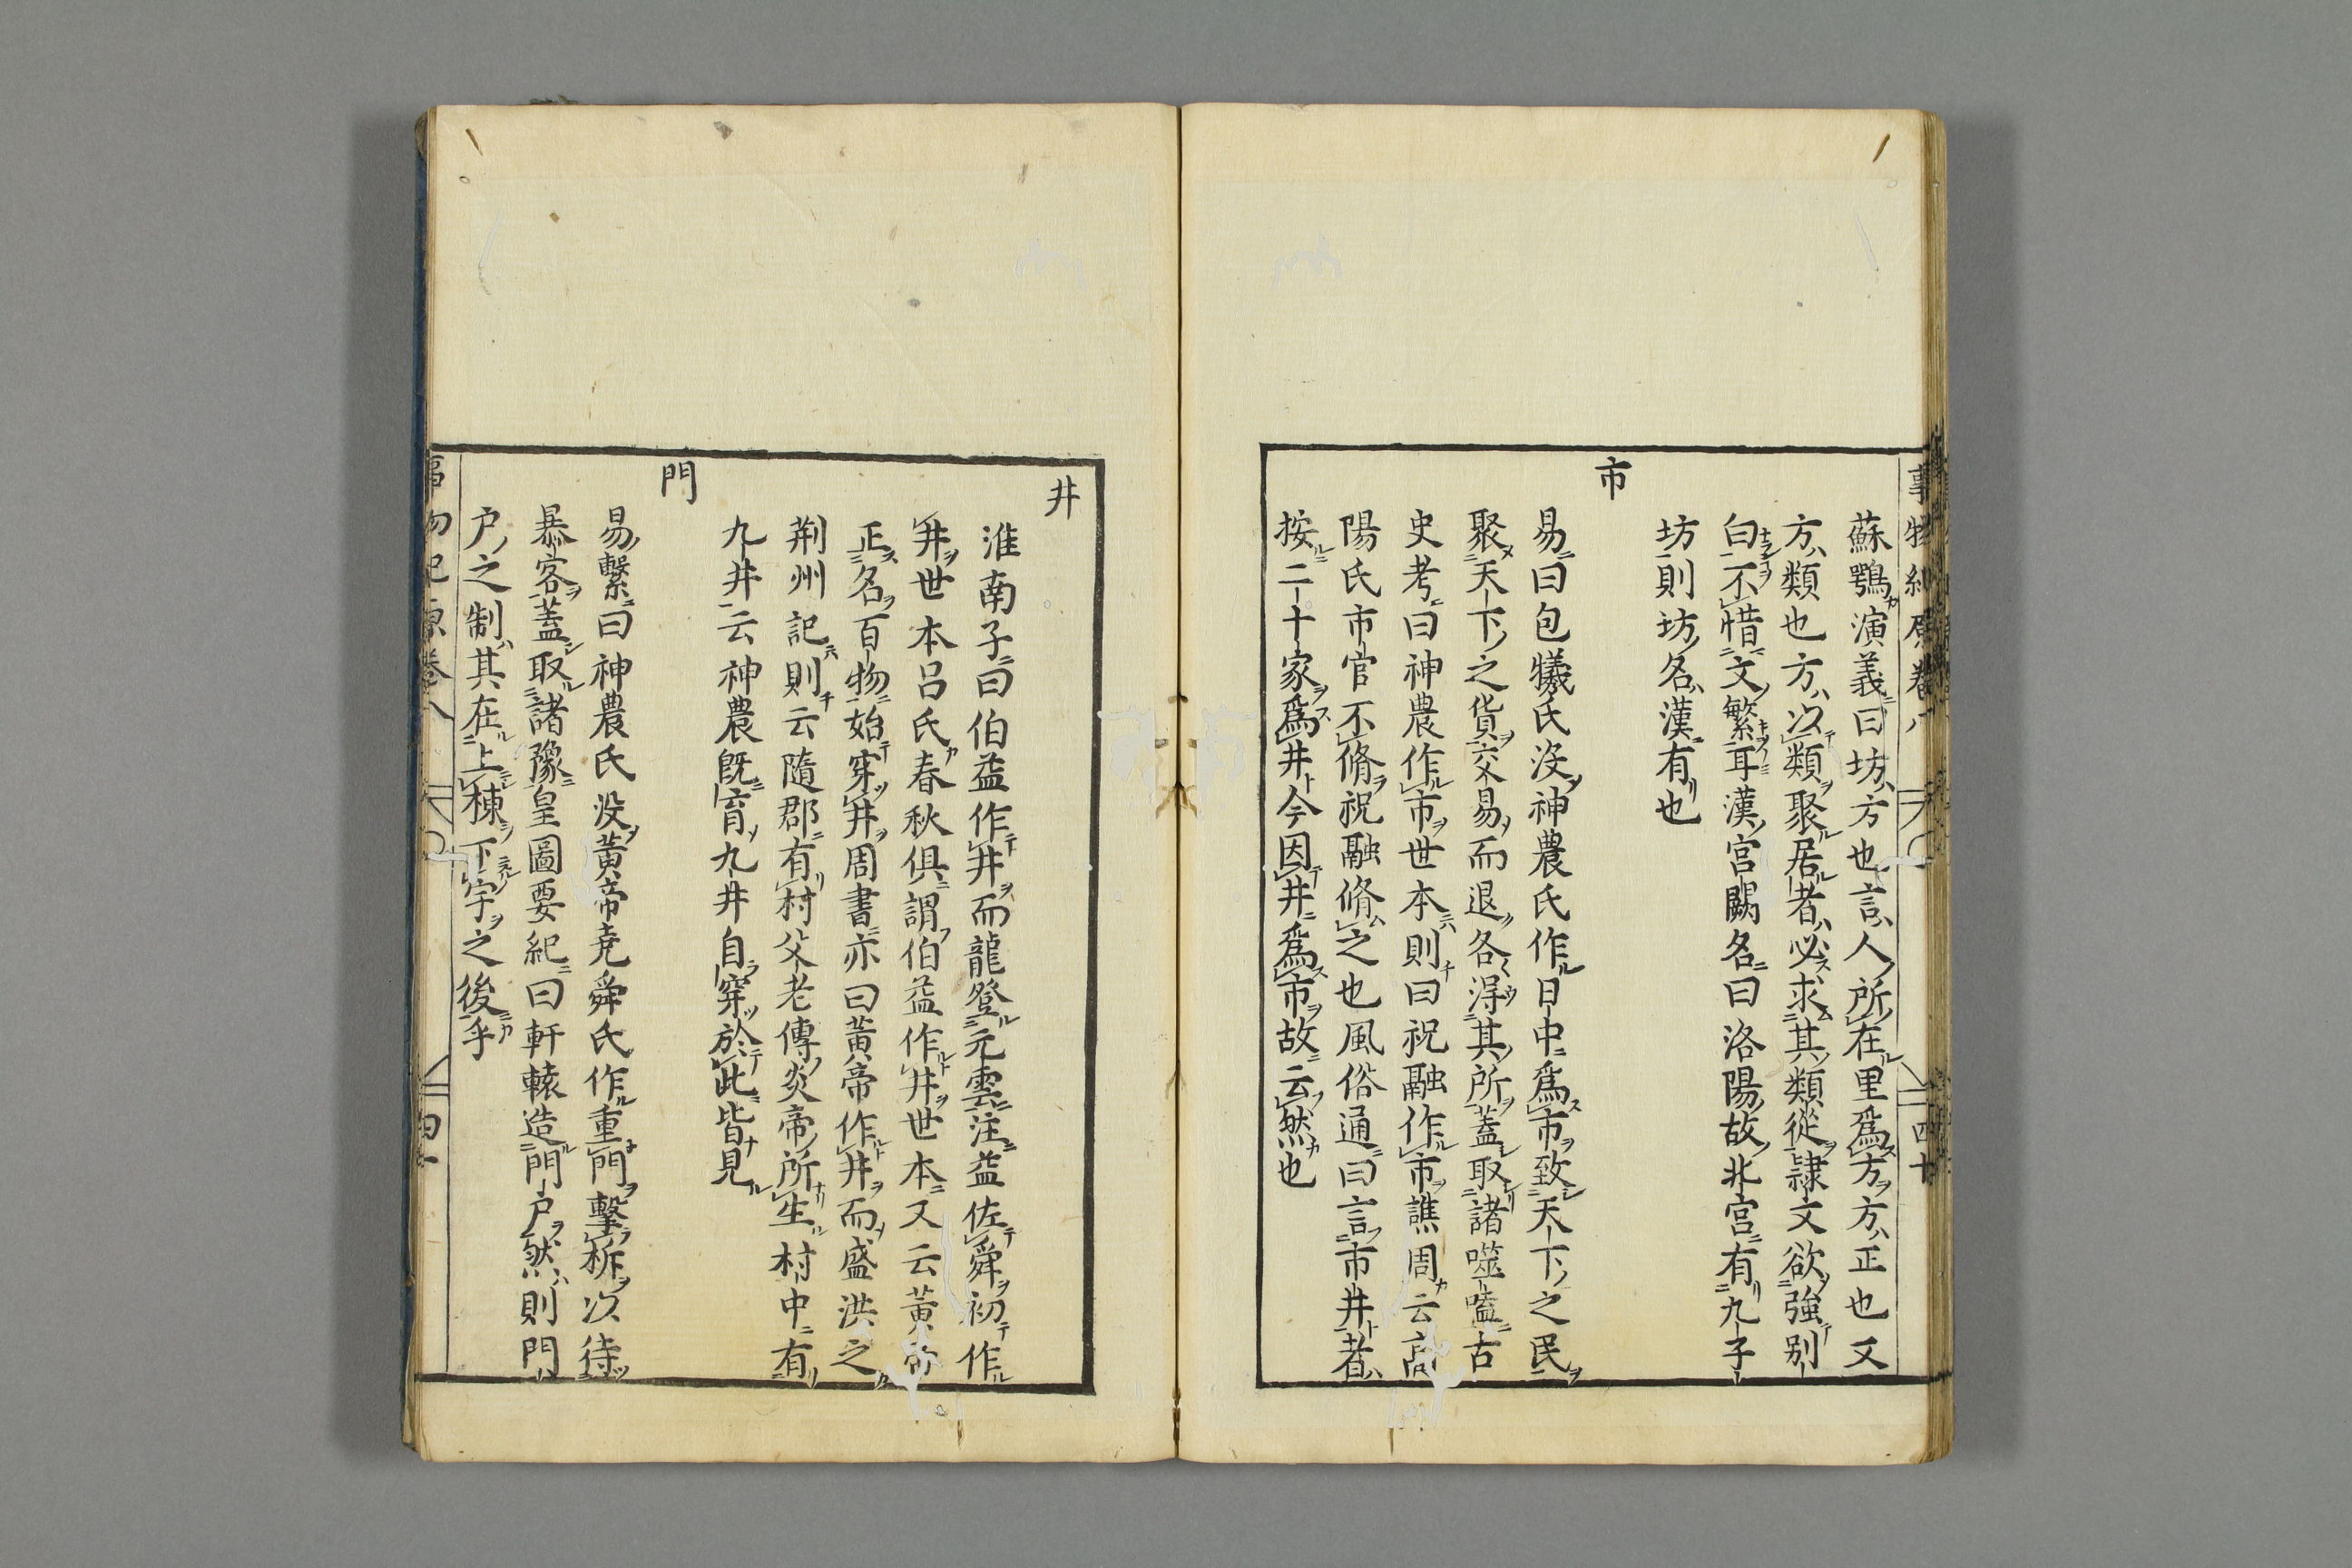 事物紀原卷八
四十
蘇鶚演義曰坊方也言人所在里爲方方正也又
方類也方以類聚居者必求其類從隷文欲強别
白不惜文繁耳漢宮闕名曰洛陽故北宮有九子
坊則坊名漢有也
市
易曰包犧氏没神農氏作日中爲市致天下之民
聚天下之貨交易而退各得其所蓋取諸噬嗑古
史考曰神農作市世本則曰祝融作市譙周云高
陽氏市官不脩祝融脩之也風俗通曰言市井者
按二十家爲井今因井爲市故云然也
井
淮南子曰伯益作井而龍登元雲注益佐舜初作
井世本呂氏春秋俱謂伯益作井世本又云黄帝
正名百物始穿井周書亦曰黄帝作井而盛洪之
荆州記則云隨郡有村父老傳炎帝所生村中有
九井云神農既育九井自穿於此皆見
門
易繫曰神農氏没黄帝堯舜氏作重門擊柝以待
暴客蓋取諸豫皇圖要紀曰軒轅造門户然則門
户之制其在上棟下宇之後乎